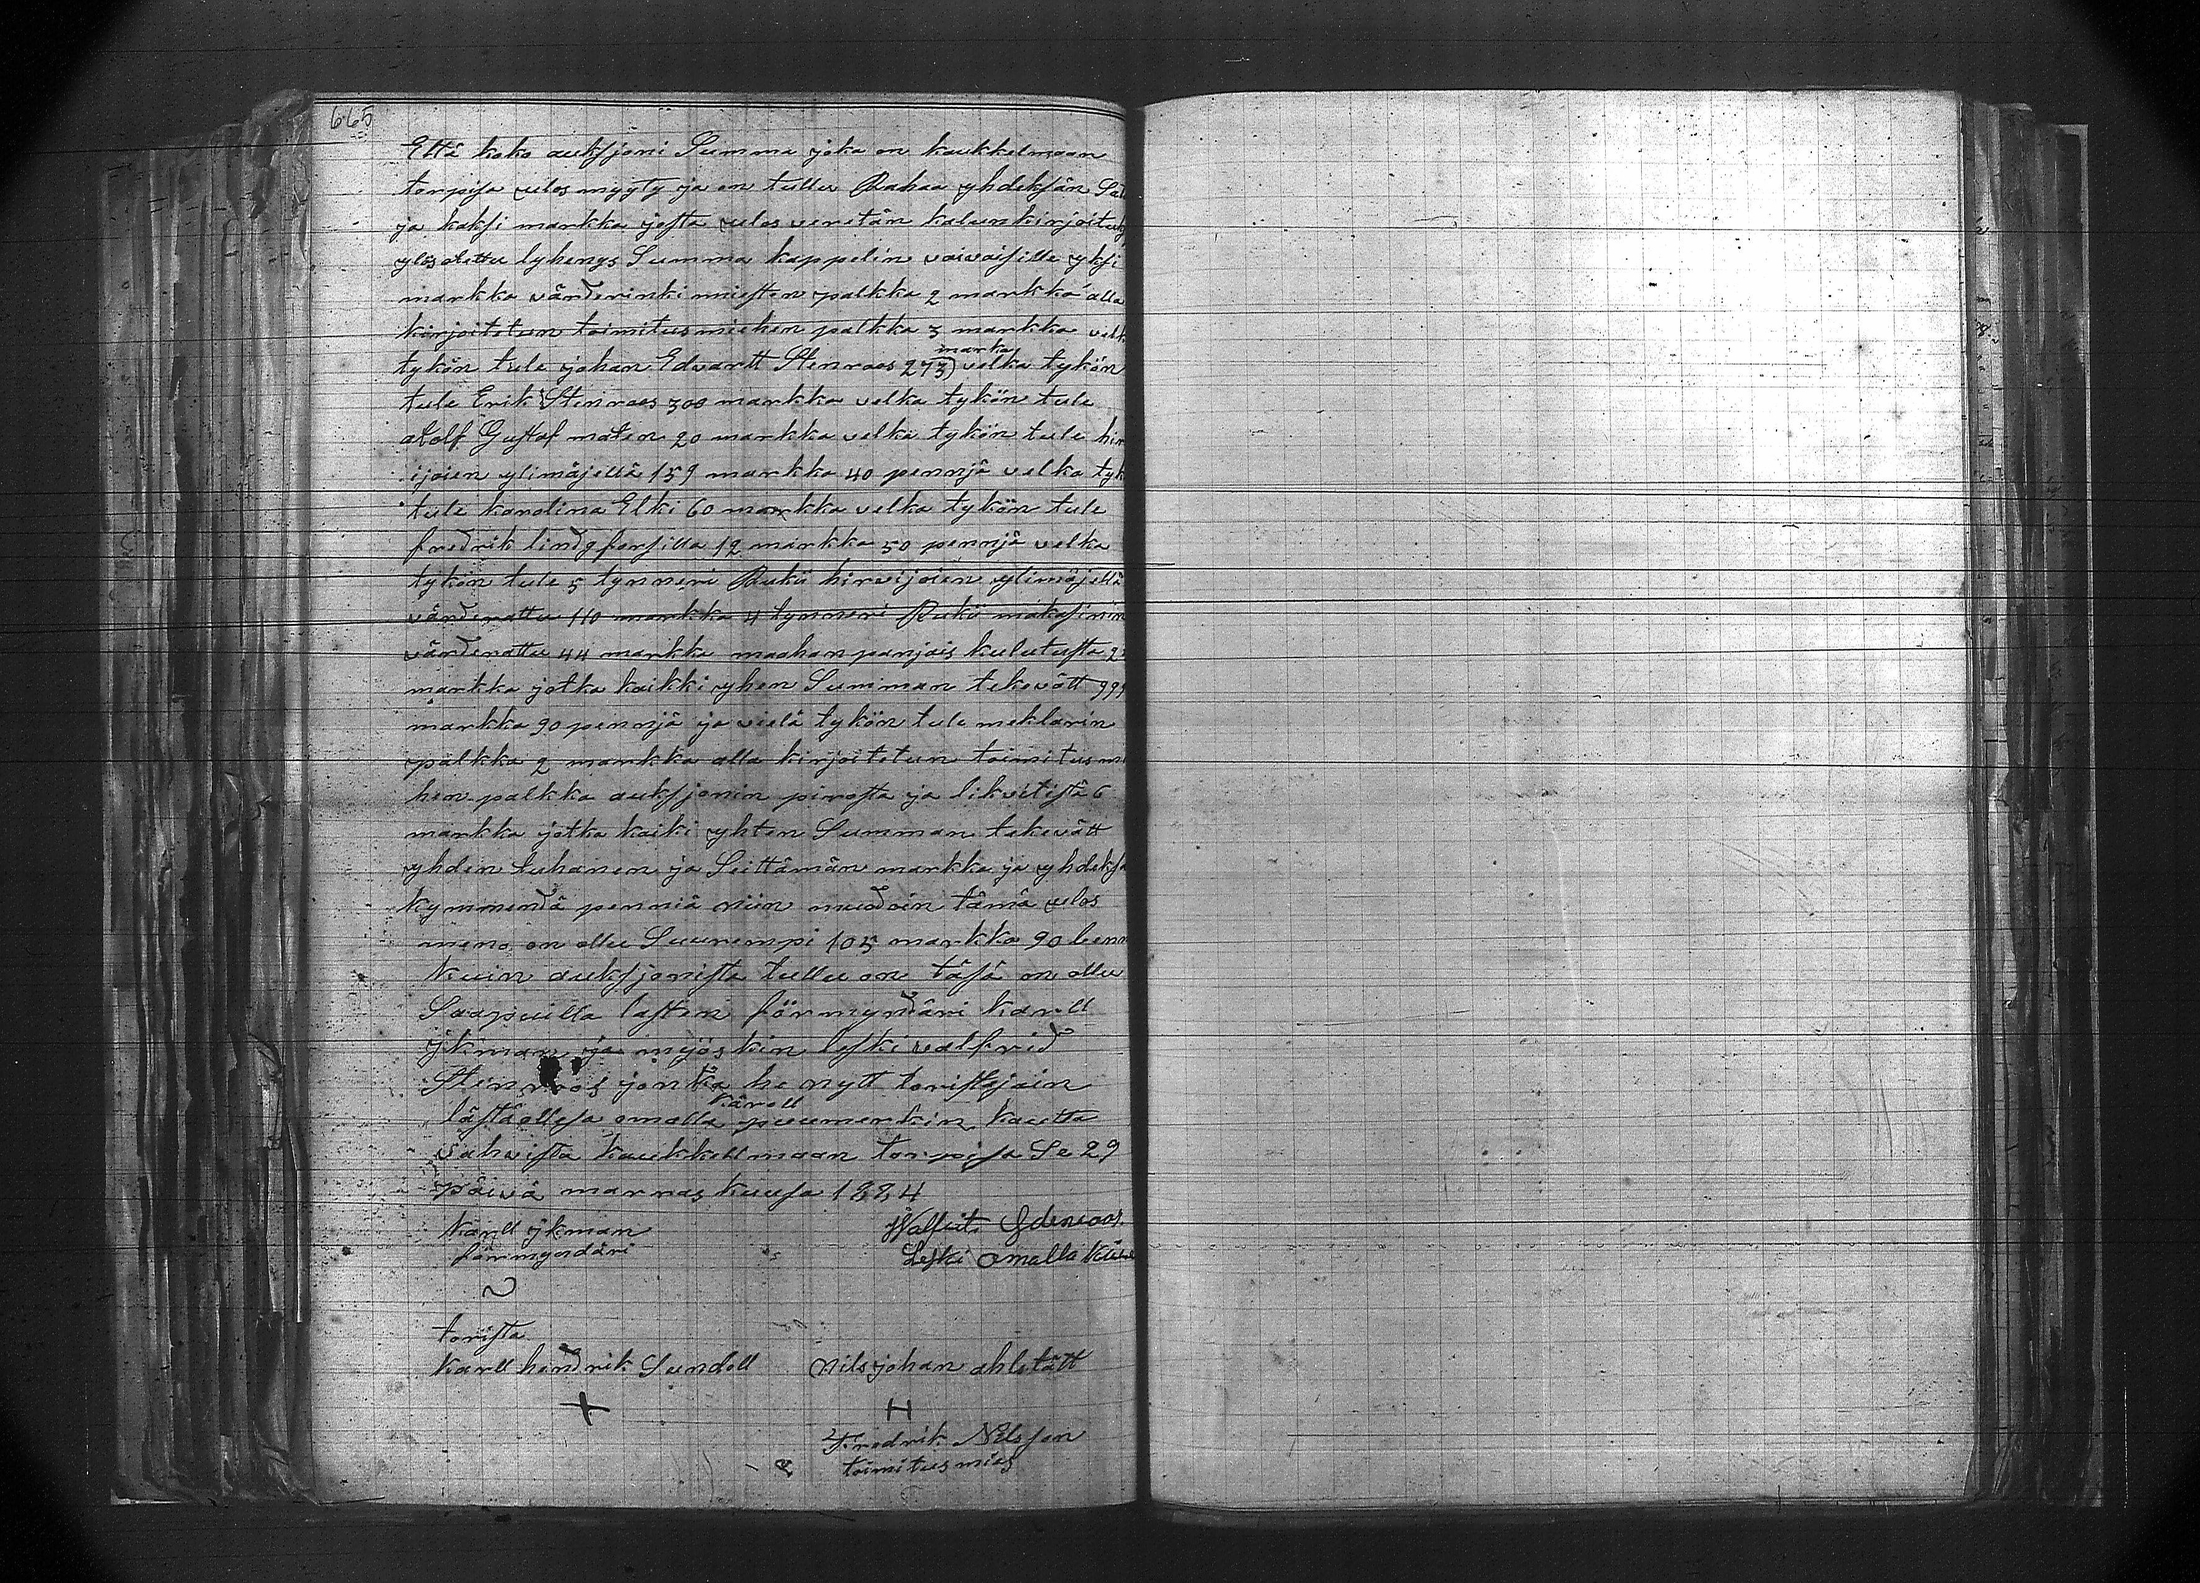 665
Että koko aukſjoni Summa joka on kaukkelmaan
torpiſa ulos myyty ja on tullu Rahaa yhdekſän Sat
ja kakſi markka joſta ulos veretän kalun kirjoituk
ylösotettu lyhengs Summa kappelin vaivaiſille ykſi
markka värderinki mieſten palkka 2 markka alla
kirjoitetun toimitusmiehen palkka 3 markka velk
tykön tule johan Edvartt Stenroos 273 marka velka tykön
tule Erik Stenroos 300 markka velka tykön tule
atolf Guſtaf maten 20 markka velka tykön tule hir
ijoien ylimäjellä 159 markka 40 penniä velka tyk
tule karolina Elki 60 markka velka tykön tule
fredrik lindgforſilla 12 markka 50 penniä velka
tykön tule 5 tynneri Rukii hirvijoien ylimäjellä
värderattu 110 markka 4 tynneri Rukii makaſinin
värderattu 44 markka maahan panjais kulutuſta
markka jotka kaikki yhen Summan tekevätt 999
markka 90 penniä ja vielä tykön tule meklarin
palkka 2 markka alla kirjoitetun toimitusmi
hen palkka aukſjonin piroſta ja likvitiſtä 6
markka jotka kaiki yhten Summan tekevätt
yhden tuhanen ja Seittämän markka ja yhdekſä
kymmendä penniä niin muodoin tämä ulos
meno on ollu Suurempi 105 markka 90 benn
kuin aukſjoniſta tullu on täſä on ollu
Saapuilla laſten förmyndäri karll
ÿkman ja myöskin leſki valfrid
Stenroos jonka he nytt toriſtajain
läſtäolleſa omalla käroll puumerkin kautta
vahviſta kaukkellmaan torpiſa Se 29
päivä marraskuuſa 1884
Karll ÿkman
förmyndäri
Walfrit Sdenroos
Leſki omalla käre
toriſta
karll hendrik Sundell nilsjohan ahlstätt
+ H
Fredrik Nilsſon
toimitusmies